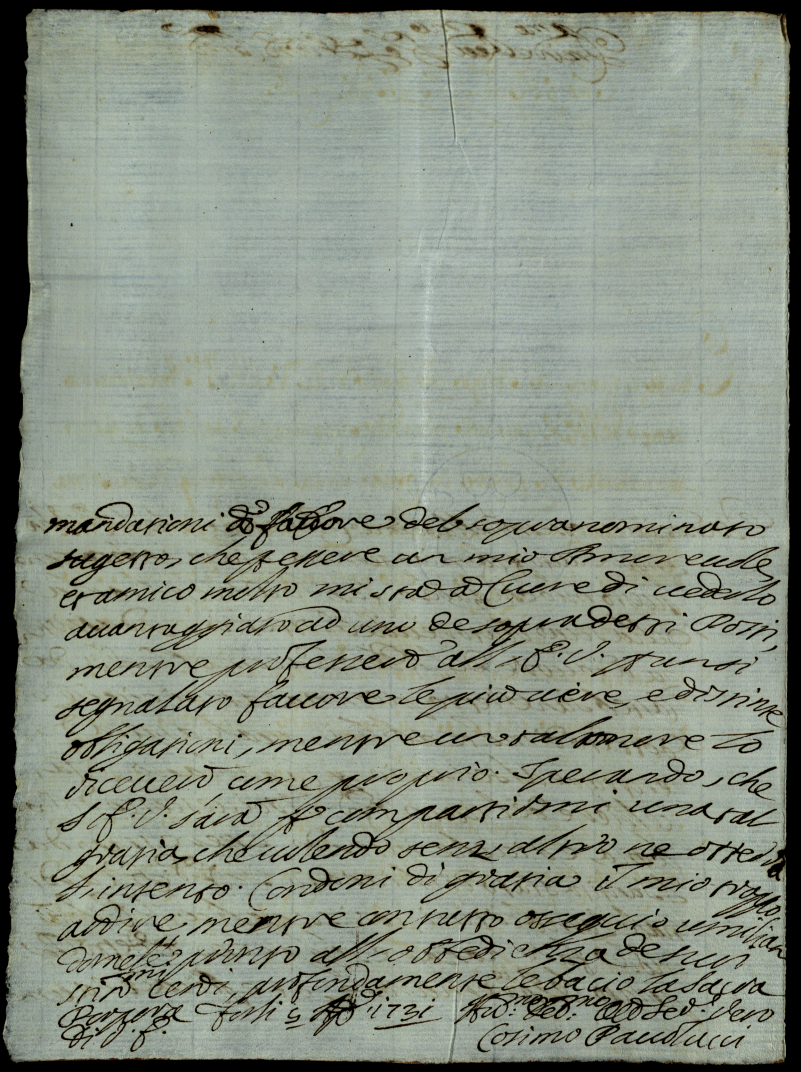 mandationi a fauore del sopranominato
sugetto, che p essere un mio Amoreuole,
et amico molto mi sta a Cuore di uederlo
auantaggiato ad uno de sopradetti Posti,
mentre professerò all' E. V. p un si
segnalato fauore le più uiere, e distinte
obligationi, mentre un tal onore lo
riceuerò come proprio. Sperando, che
l' E. V. sarà p compartirmi una tal
gratia, che uolendo senz' altro ne otterrà
l' intento. Condoni di gratia il mio troppo
ardire, mentre con tutto ossequio umilian
domele pronto all' obbedienza de suoi
stim.mi cenni, profondamente le bacio la sacra
Porpora Forlì 5 1731
di V. E.
Cosimo Paulucci